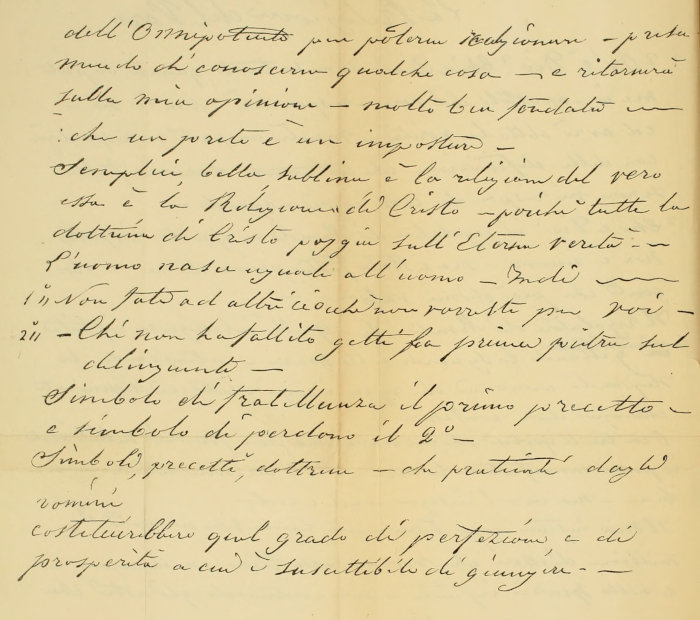 dell'Omnipotente per poterne ragionare – presu-
mendo di conoscerne qualche cosa – e ritornerò
sulla mia opinione – molto ben fondata —
: che un prete è un impostore –
Semplice, bella sublime è la religione del vero
essa è la Religione di Cristo – poichè tutta la
dottrina di Cristo poggia sull'Eterna verità. –
L'uomo nasce uguale all'uomo – Indi —
1º Non fate ad altri ciocchè non vorreste per voi –
2º – Chi non ha fallito getti la prima pietra sul
delinquente –
Simbolo di fratellanza il primo precetto –
e simbolo di perdono il 2º –
Simboli, precetti, dottrine – che praticati dagli
uomini
costituirebbero quel grado di perfezione e di
prosperità a cui è suscettibile di giungere. –